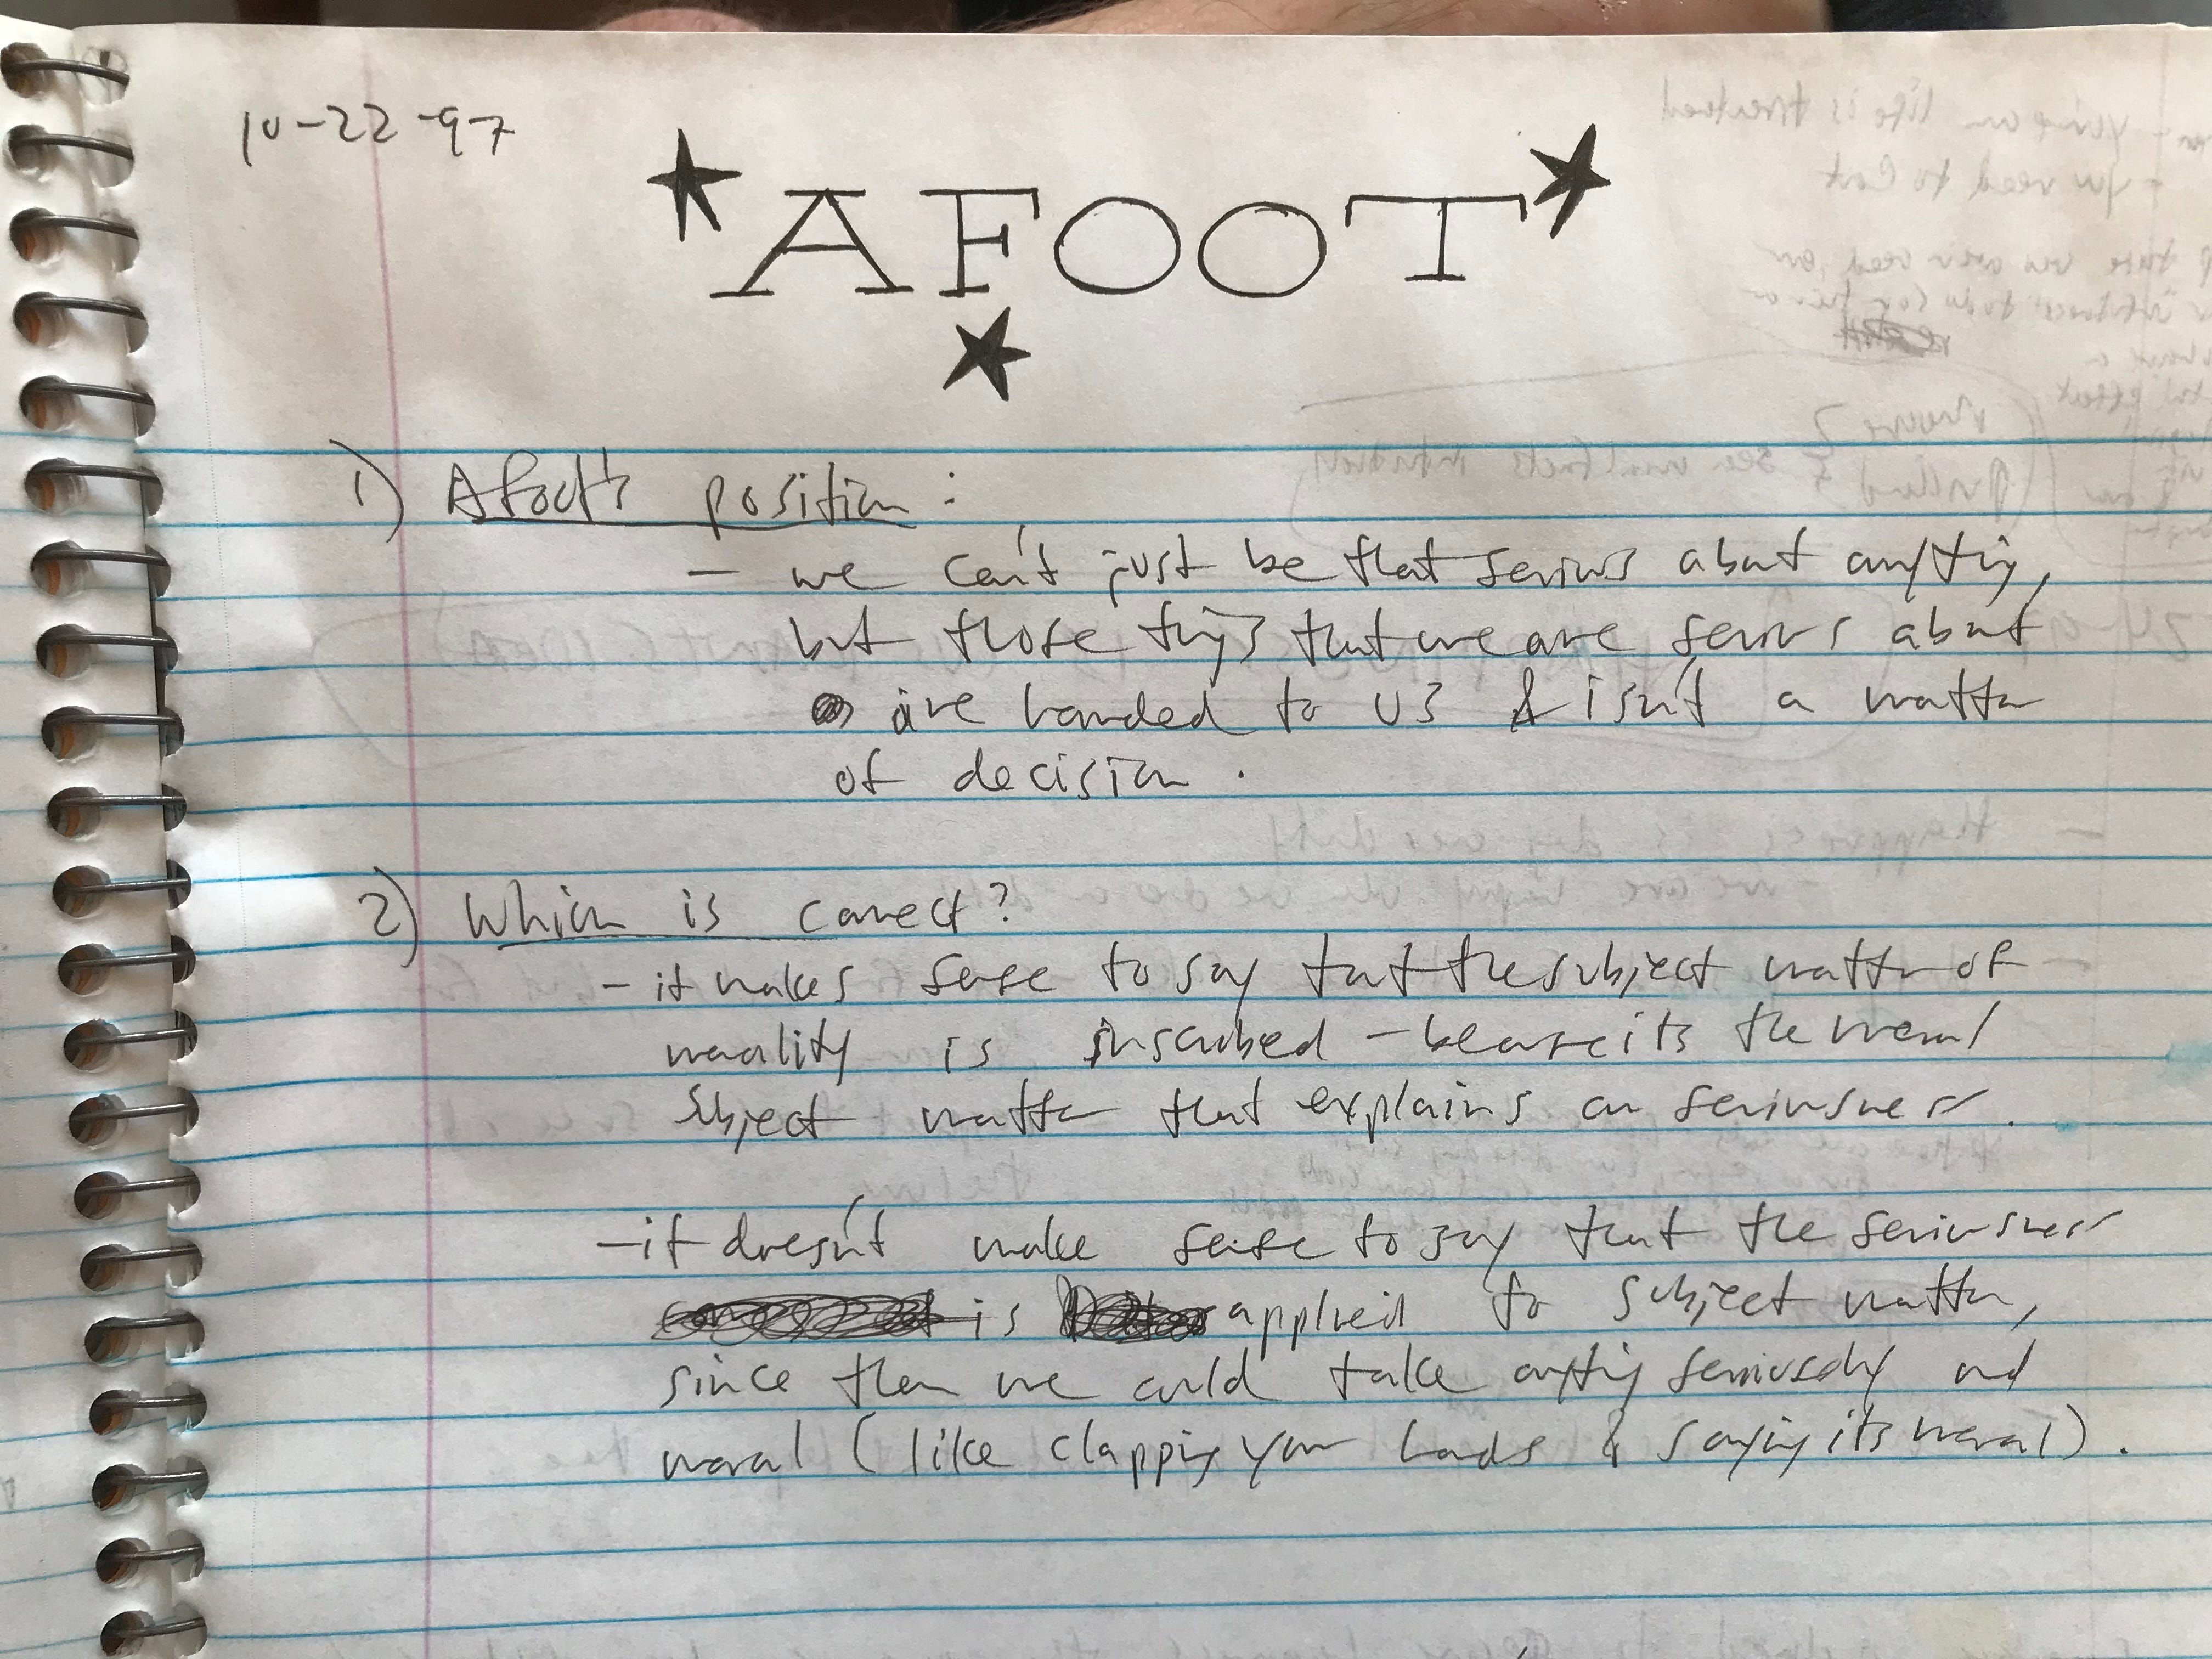 10-22-97
AFOOT
1) Afoot's position:
- we can't just be that serious about anything,
but those things that we are serious about
are handed to us & isn't a matter
of decision.
2) Which is correct?
- it makes sense to say that the subject matter of
morality is inscribed - because its the moral
subject matter that explains our seriousness.
- it doesn't make sense to say that the seriousness
is applied to subject matter,
since then we could take anything seriously and
moral (like clapping your hands & saying its moral).